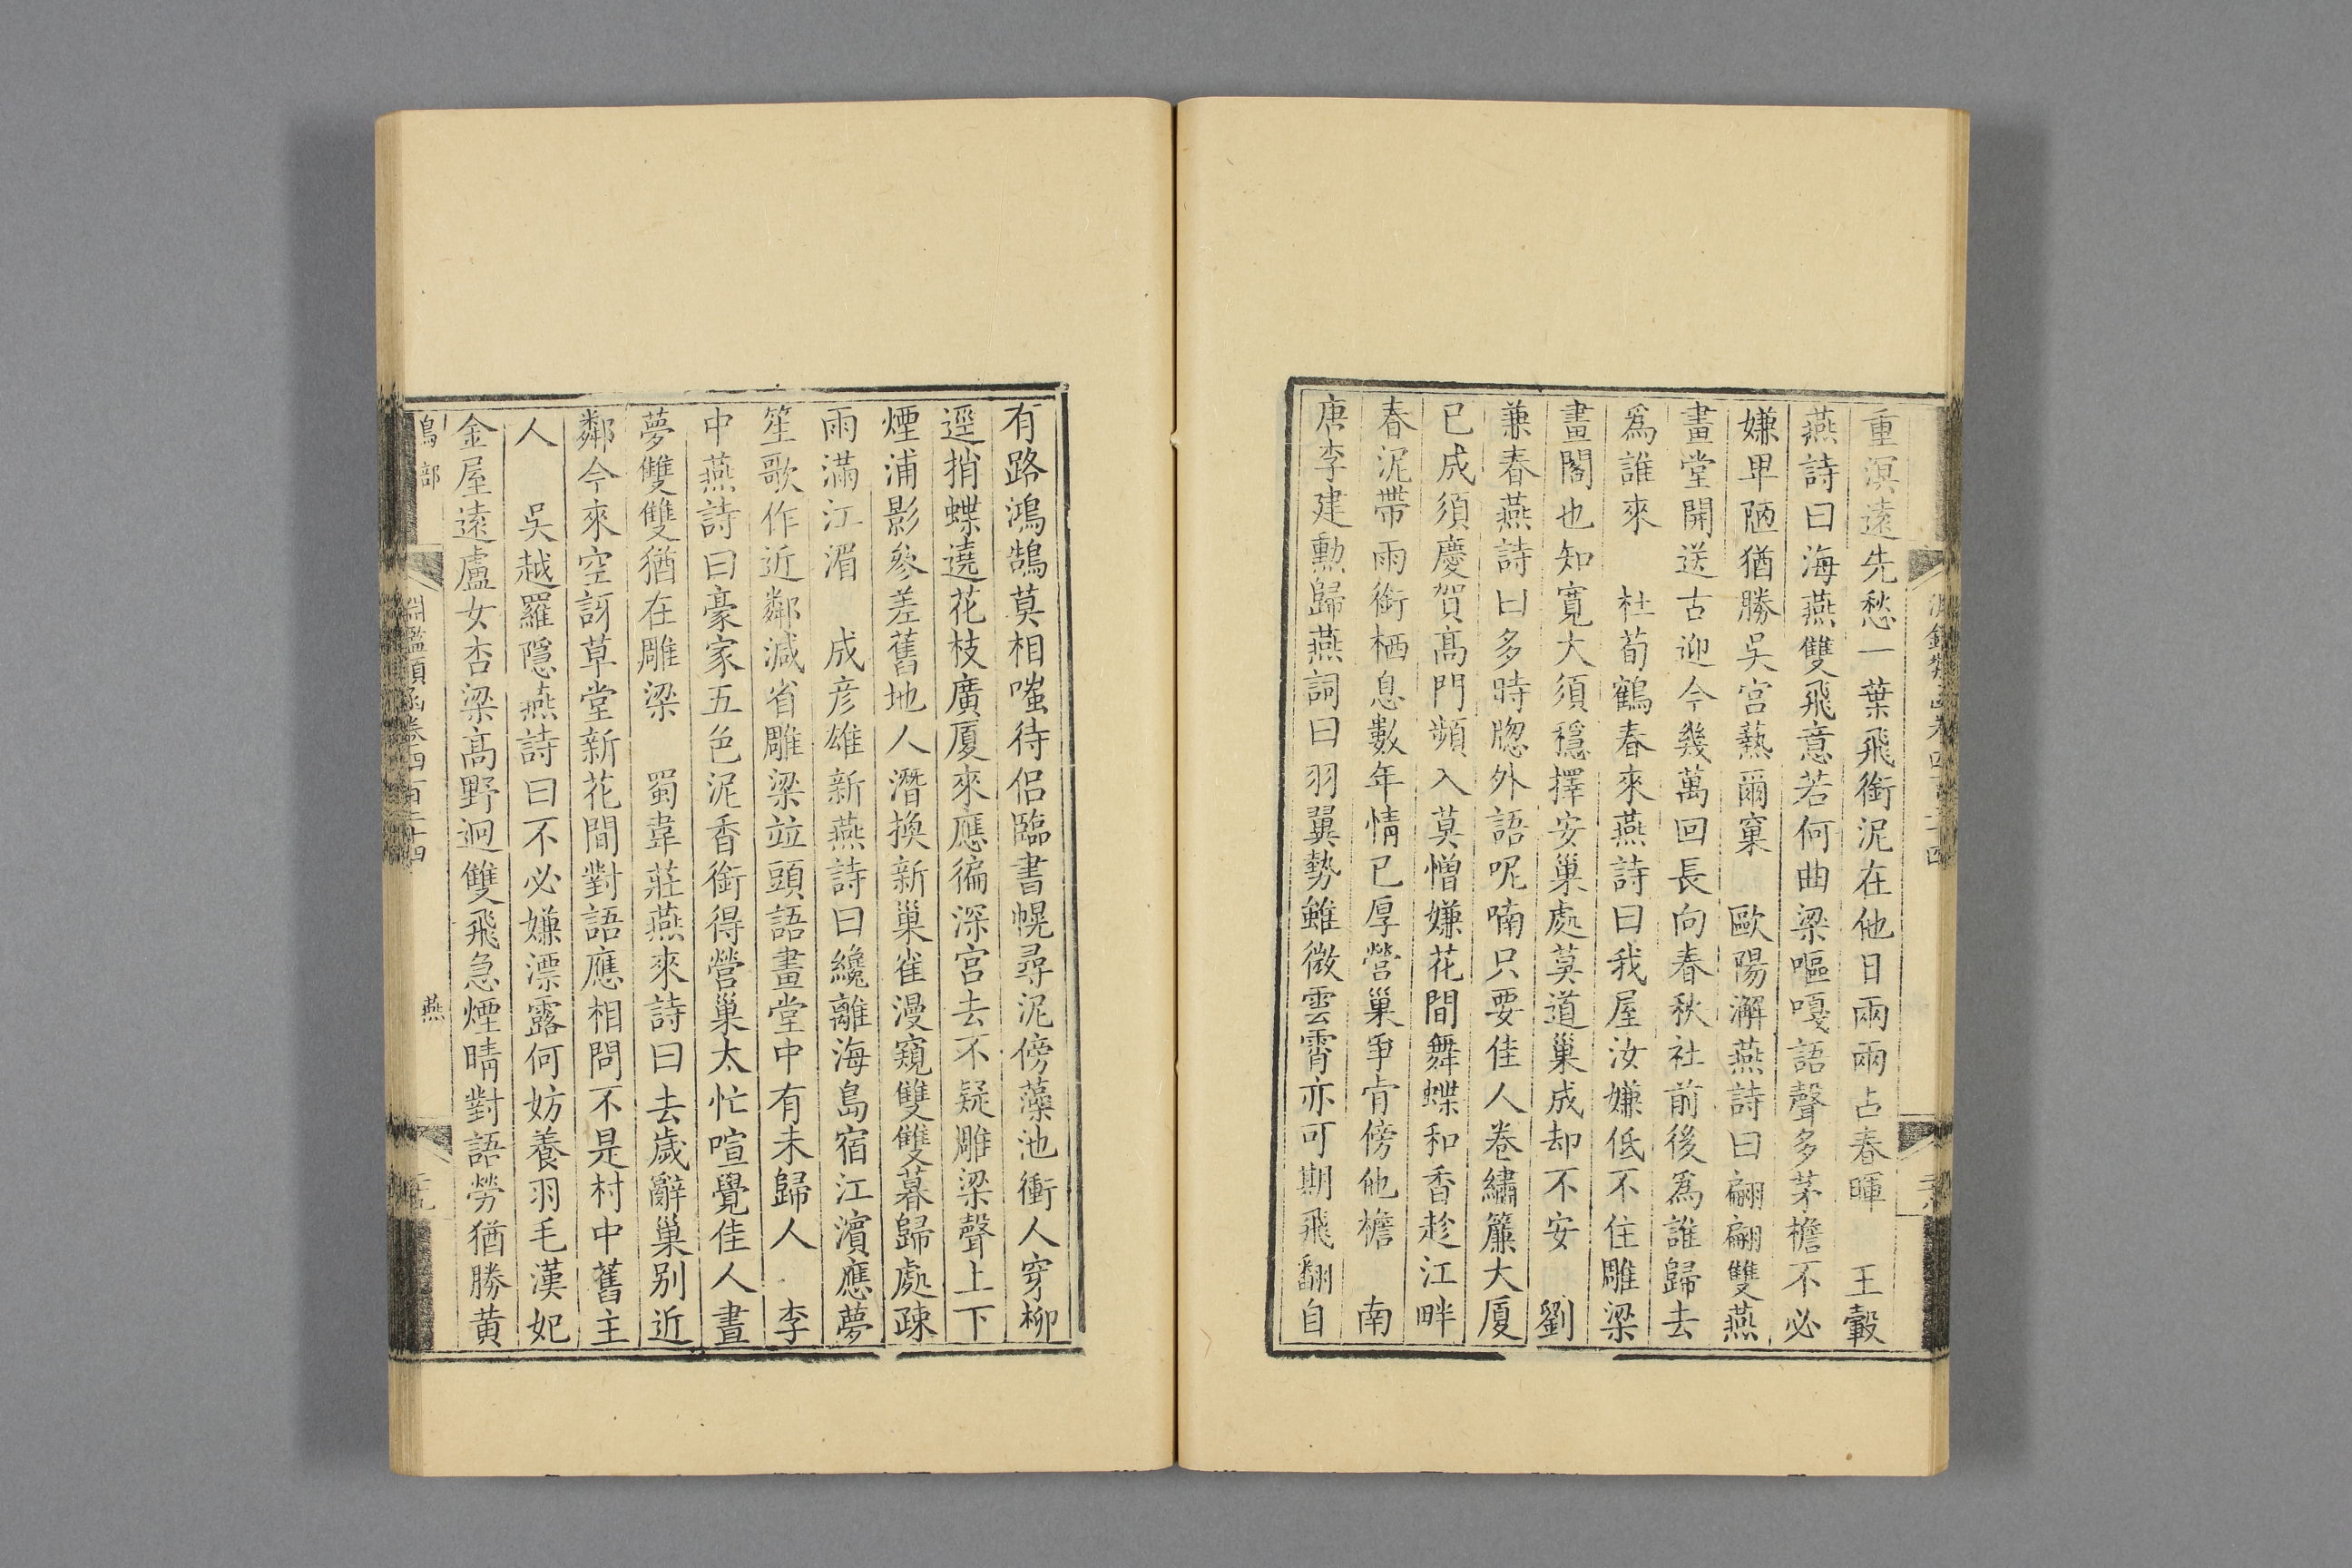 重溟遠先愁一葉飛銜泥在他日兩兩占春暉　王轂
燕詩曰海燕雙飛意若何曲梁嘔嘎語聲多茅檐不必
嫌卑陋猶勝吳宮爇爾窠　歐陽澥燕詩曰翩翩雙燕
畫堂開送古迎今幾萬回長向春秋社前後爲誰歸去
爲誰來　杜荀鶴春來燕詩曰我屋汝嫌低不住雕梁
畫閣也知寬大須穩擇安巢處莫道巢成却不安　劉
兼春燕詩曰多時牕外語呢喃只要佳人卷繡簾大厦
已成須慶賀高門頻入莫憎嫌花間舞蝶和香趁江畔
春泥帶雨銜栖息數年情已厚營巢爭肯傍他檐　南
唐李建勳歸燕詞曰羽翼勢雖微雲霄亦可期飛翻自
有路鴻鵠莫相嗤待侶臨書幌尋泥傍藻池衝人穿柳
逕捎蝶遶花枝廣厦來應徧深宮去不疑雕梁聲上下
煙浦影參差舊地人潛換新巢雀漫窺雙雙暮歸處疎
雨滿江湄　成彦雄新燕詩曰纔離海島宿江濱應夢
笙歌作近鄰減省雕梁竝頭語畫堂中有未歸人　李
中燕詩曰豪家五色泥香銜得營巢太忙喧覺佳人晝
夢雙雙猶在雕梁　蜀韋莊燕來詩曰去歲辭巢别近
鄰今來空訝草堂新花間對語應相問不是村中舊主
人　吳越羅隱燕詩曰不必嫌漂露何妨養羽毛漢妃
金屋遠盧女杏梁高野迥雙飛急煙晴對語勞猶勝黃
鳥部　淵鑑類函卷四百二十四　燕